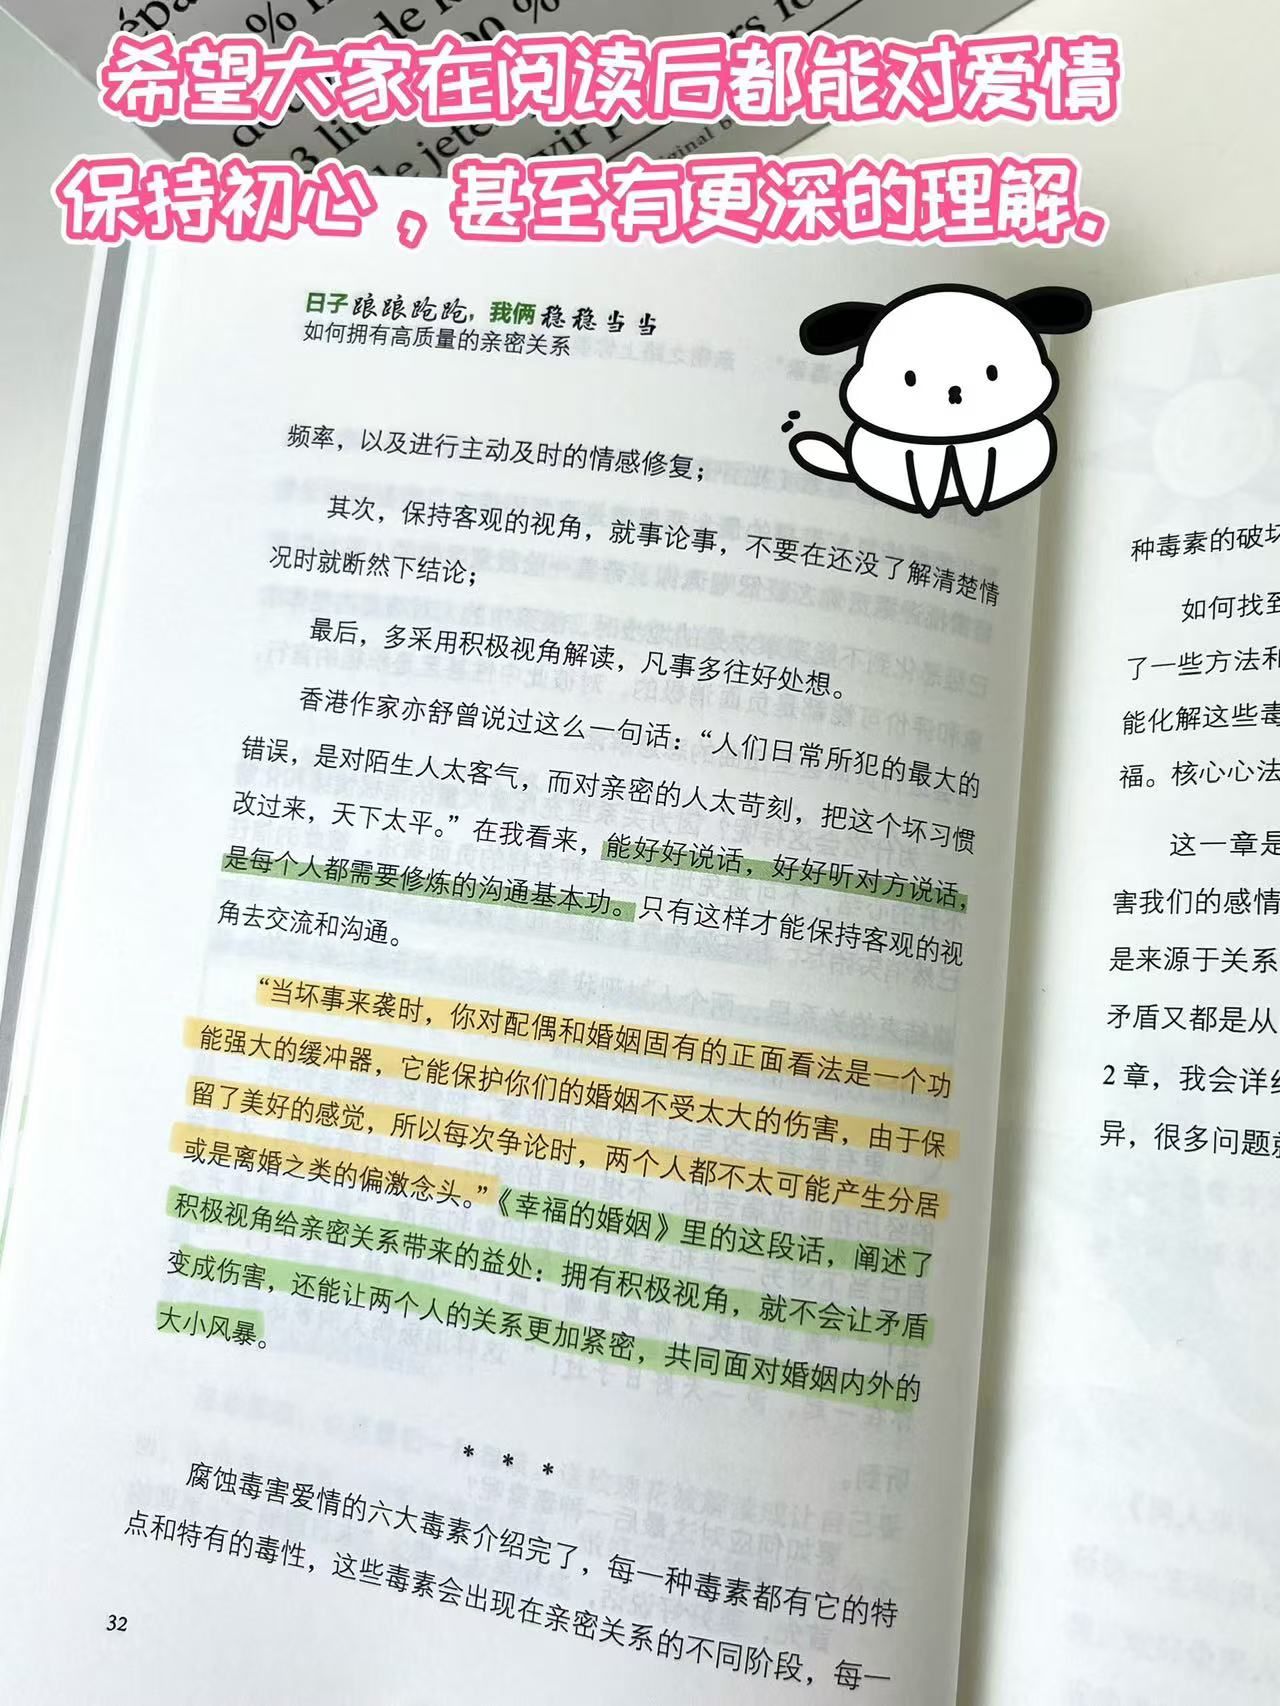 希望大家在阅读后都能对爱情
保持初心，甚至有更深的理解.
日子踉踉跄跄，我俩稳稳当当
如何拥有高质量的亲密关系
频率，以及进行主动及时的情感修复；
其次，保持客观的视角，就事论事，不要在还没了解清楚情
况时就断然下结论；
最后，多采用积极视角解读，凡事多往好处想。
香港作家亦舒曾说过这么一句话：“人们日常所犯的最大的
错误，是对陌生人太客气，而对亲密的人太苛刻，把这个坏习惯
改过来，天下太平。”在我看来，能好好说话，好好听对方说话，
是每个人都需要修炼的沟通基本功。只有这样才能保持客观的视
角去交流和沟通。
“当坏事来袭时，你对配偶和婚姻固有的正面看法是一个功
能强大的缓冲器，它能保护你们的婚姻不受太大的伤害，由于保
留了美好的感觉，所以每次争论时，两个人都不太可能产生分居
或是离婚之类的偏激念头。”《幸福的婚姻》里的这段话，阐述了
积极视角给亲密关系带来的益处：拥有积极视角，就不会让矛盾
变成伤害，还能让两个人的关系更加紧密，共同面对婚姻内外的
大小风暴。
* * *
腐蚀毒害爱情的六大毒素介绍完了，每一种毒素都有它的特
点和特有的毒性，这些毒素会出现在亲密关系的不同阶段，每一
32
种毒素的破坏
如何找到
了一些方法和
能化解这些毒
福。核心心法
这一章是
害我们的感情
是来源于关系
矛盾又都是从
2章，我会详细
异，很多问题就